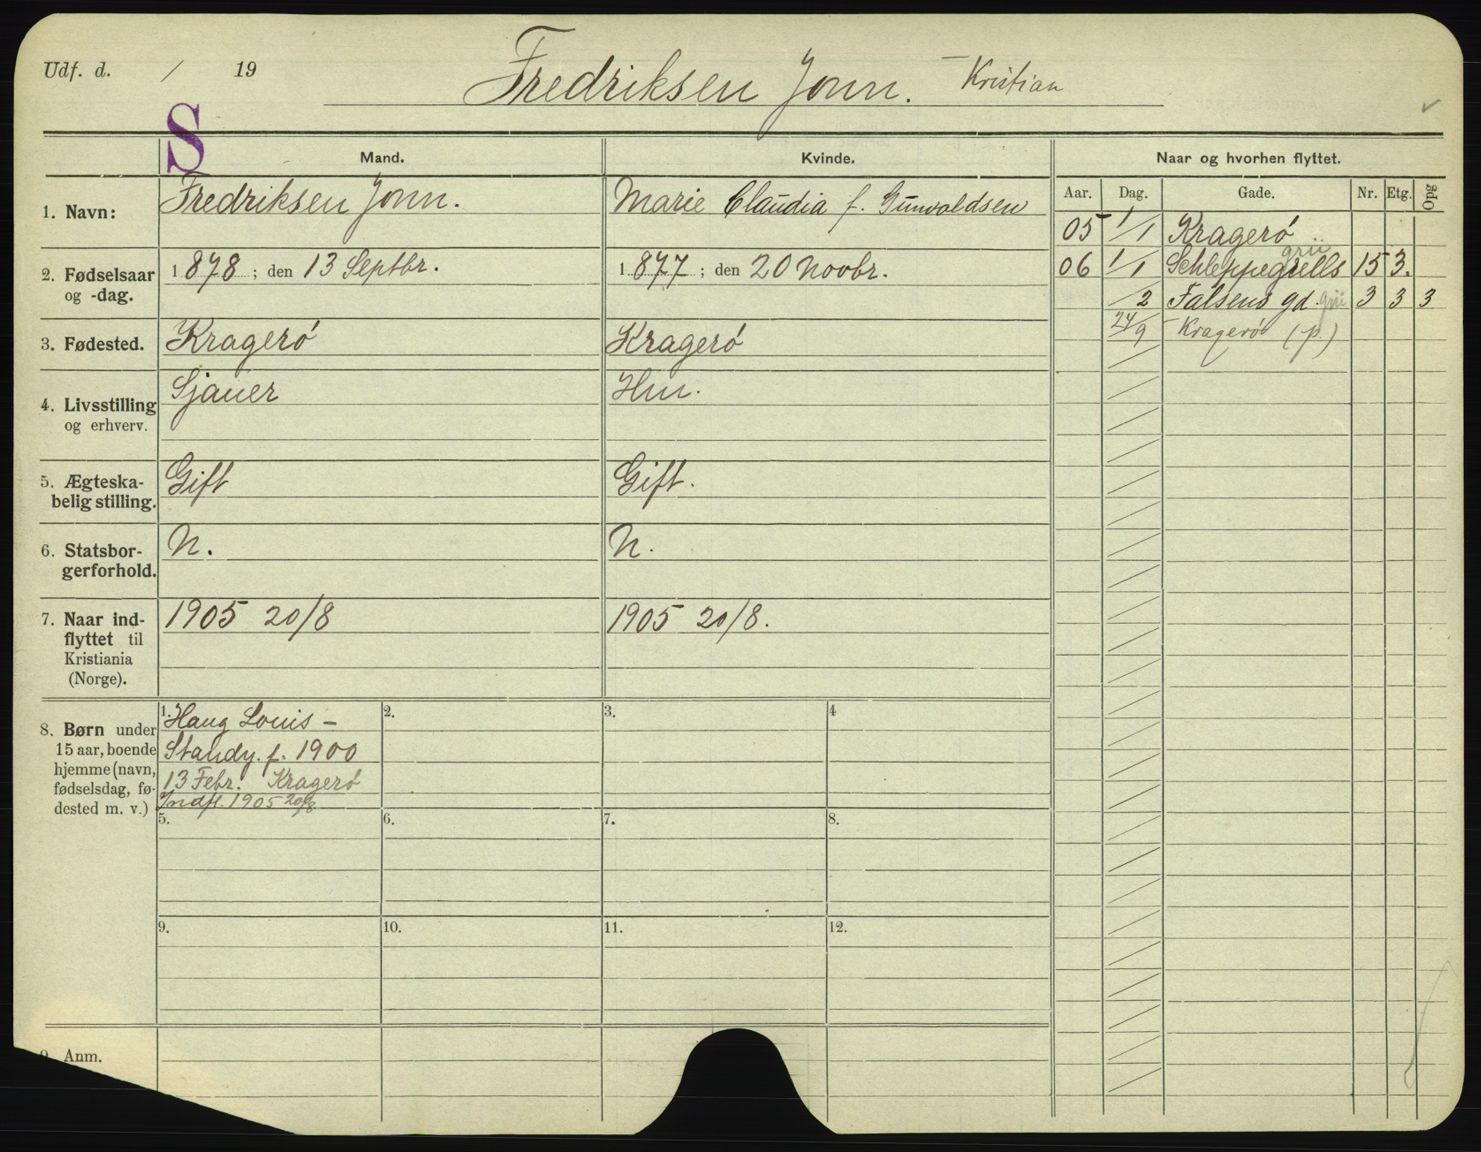 Udf. d. / 19
Fredriksen Jonn. Kristian
S
Mand. Kvinde. Naar og hvorhen flyttet.
Aar. Dag. Gade. Nr. Etg. Opg
1. Navn: Fredriksen Jonn. Marie Claudia f. Gunvaldsen
05 1/1 Kragerø
2. Fødselsaar og -dag. 1878; den 13 Septbr. 1877; den 20 Novbr.
06 1/1 Schleppegrells grü 15 3.
/2 Falsens gd. grü 3 3 3
24/9 Kragerø (p.)
3. Fødested. Kragerø Kragerø
4. Livsstilling og erhverv. Sjauer Hm.
5. Ægteska-
belig stilling. Gift Gift.
6. Statsbor-
gerforhold. N. N.
7. Naar ind-
flyttet til
Kristiania
(Norge).
1905 20/8 1905 20/8.
8. Børn under
15 aar, boende
hjemme (navn,
fødselsdag, fø-
dested m. v.)
1. Haug Louis –
f. 1900
13 Febr. Kragerø
Indfl. 1905 20/8
2. 3. 4
5. 6. 7. 8.
9. 10. 11. 12.
9. Anm.